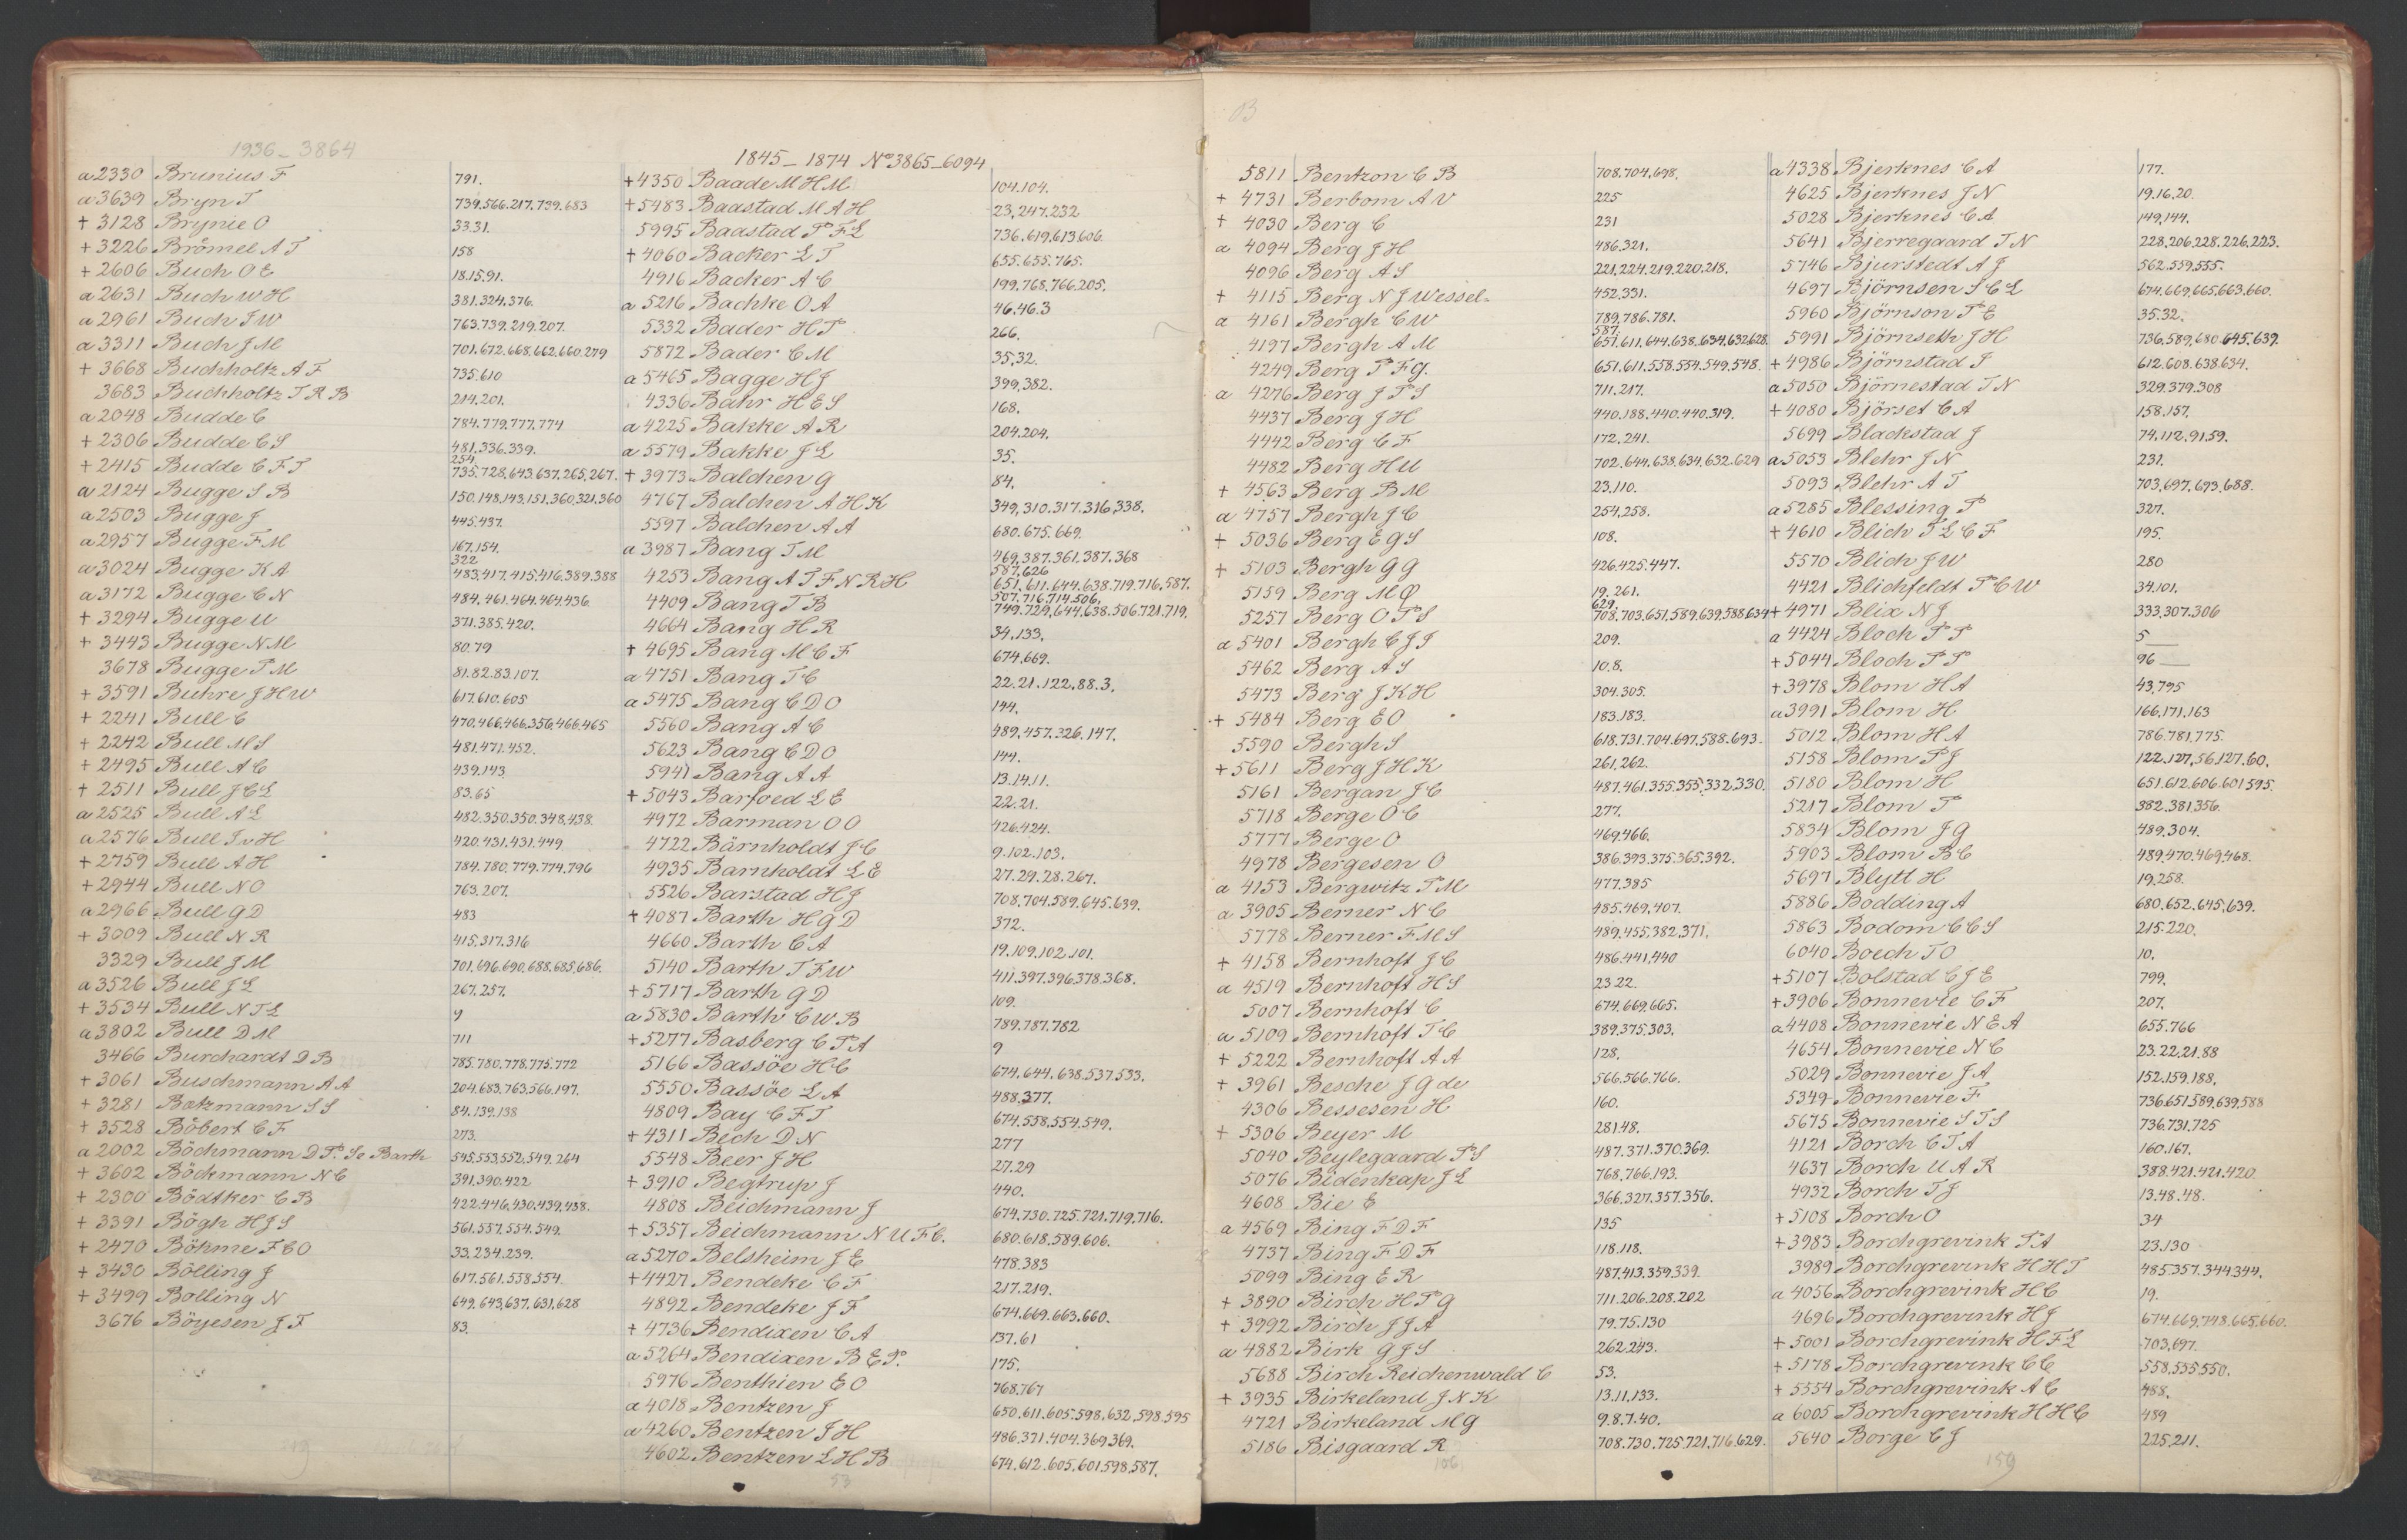 1936_3864
a 2330 Brunius F 791.
a 3639 Bryn T 739.566.217.739.683
+ 3128 Brynie O 33.31.
+ 3226 Brömel A T 158
+ 2606 Buch O E 18.15.91.
a 2631 Buch W H 381.324.376.
a 2961 Buch F W 763.739.219.207.
a 3311 Buch J M 701.672.668.662.660.279
+ 3668 Buchholtz A F 735.610
3683 Buchholtz T R B 214.201.
a 2048 Budde C 784.779.777.774
+ 2306 Budde C S 481.336.339.
+ 2415 Budde C F T 254 735.728.643.637.265.267.
a 2124 Bugge S B 150.148.143.151.360.321.360
a 2503 Bugge J 445.437.
a 2957 Bugge F M 167.154.
a 3024 Bugge K A 322 483.417.415.416.389.388
a 3172 Bugge C N 484.461.464.464.436.
+ 3294 Bugge U 371.385.420.
+ 3443 Bugge N M 80.79
3678 Bugge P M 81.82.83.107.
+ 3591 Buhre J H W 617.610.605
+ 2241 Bull C 470.466.466.356.466.465
+ 2242 Bull M S 481.471.452.
+ 2495 Bull A C 439.143
+ 2511 Bull J C L 83.65
a 2525 Bull A L 482.350.350.348.438.
a 2576 Bull J. v H 420.431.431.449
+ 2759 Bull A H 784.780.779.774.796
+ 2944 Bull N O 763.207.
a 2966 Bull G D 483
+ 3009 Bull N R 415.317.316
3329 Bull J M 701.696.690.688.685.686.
a 3526 Bull J L 267.257.
+ 3534 Bull N T L 9
a 3802 Bull D M 711
3466 Burchardt D B 785.780.778.775.772
+ 3061 Buschmann A A 204.683.763.566.197.
+ 3281 Batzmann S S 84.139.138
+ 3528 Böbert C F 273.
a 2002 Böchmann D P. Se Barth 545.553.552.549.264
+ 3602 Böckmann N C 391.390.422
+ 2300 Bödtker C B 422.446.430.439.438.
+ 3391 Bögh H J S 561.557.554.549.
+ 2470 Böhme F E O 33.234.239.
+ 3430 Bölling J 617.561.558.554
+ 3499 Bolling N 649.643.637.631.628
3676 Böyesen J F 83.
1845_1874 No 3865_6094
+ 4350 Baade M H M 104.104.
+ 5483 Baastad M A H 23.247.232
5995 Baastad P F L 736.619.613.606.
+ 4060 Backer L T 655.655.765.
4916 Backer A C 199.768.766.205.
a 5216 Bachke O A 46.46.3
5332 Bader H P 266.
5872 Bader C M 35.32.
a 5465 Bagge H J 399.382.
4336 Bahr H E S 168.
a 4225 Bakke A R 204.204.
a 5579 Bakke J L 35.
+ 3973 Balchen G 84.
4767 Balchen A H K 349.310.317.316.338.
5597 Balchen A A 680.675.669.
a 3987 Bang T M 469.387.361.387.368
4253 Bang A T F N R H 587.626 651.611.644.638.719.716.587.
4409 Bang T B 507.716.714.506. 749.729.644.638.506.721.719.
4664 Bang H R 34.133.
+ 4695 Bang M C F 674.669.
a 4751 Bang T C 22.21.122.88.3.
a 5475 Bang C D O 144.
5560 Bang A C 489.457.326.147.
5623 Bang C D O 144.
5941 Bang A A 13.14.11.
+ 5043 Barfoed L E 22.21.
4972 Barman O O 426.424.
4722 Bärnholdt J C 9.102.103.
4935 Barnholdt L E 27.29.28.267.
5526 Barstad H J 708.704.589.645.639.
+ 4087 Barth H G D 372.
4660 Barth C A 19.109.102.101.
5140 Barth T F W 411.397.396.378.368.
+ 5717 Barth G D 109.
a 5830 Barth C W B 789.787.782
+ 5277 Basberg C P A 9
5166 Bassöe H C 674.644.638.537.533.
5550 Bassöe L A 488.377.
4809 Bay C F T 674.558.554.549.
+ 4311 Bech D N 277
5548 Beer J H 27.29
+ 3910 Begtrup J 440.
4808 Beichmann J 674.730.725.721.719.716.
+ 5357 Beichmann N U F C. 680.618.589.606.
a 5270 Belsheim J E 478.383
+ 4427 Bendeke C F 217.219.
4892 Bendeke J F 674.669.663.660.
+ 4736 Bendixen C A 137.61
a 5264 Bendixen B E P. 175.
5976 Benthien E O 768.767
a 4018 Bentzen J 650.611.605.598.632.598.595
a 4260 Bentzen J H 486.371.404.369.369.
4602 Bentzen L H B 674.612.605.601.598.587.
53
B
5811 Bentzon C B 708.704.698.
+ 4731 Berbom A V 225
+ 4030 Berg C 231
a 4094 Berg J H 486.321.
4096 Berg A S 221.224.219.220.218.
+ 4115 Berg N J Wessel- 452.331.
a 4161 Bergh C W 789.786.781.
4197 Bergh A M 587. 651.611.644.638.634.632.628.
4249 Berg P F G. 651.611.558.554.549.548.
a 4276 Berg J P S 711.217.
4437 Berg J H 440.188.440.440.319.
4442 Berg C F 172.241.
4482 Berg H U 702.644.638.634.632.629
+ 4563 Berg B M 23.110.
a 4757 Bergh J C 254.258.
+ 5036 Berg E G S 108.
+ 5103 Bergh G G 426.425.447.
5159 Berg M Ø 19.261.
5257 Berg O P S 629. 708.703.651.589.639.588.634
a 5401 Bergh C J J 209.
5462 Berg A S 10.8.
5473 Berg J K H 304.305.
+ 5484 Berg E O 183.183.
5590 Bergh S 618.731.704.697.588.693.
+ 5611 Berg J H K 261.262.
5161 Bergan J C 487.461.355.355.332.330.
5718 Berge O C 277.
5777 Berge O 469.466.
4978 Bergesen O 386.393.375.365.392.
a 4153 Bergwitz P M 477.385
a 3905 Berner N C 485.469.407.
5778 Berner F M S 489.455.382.371.
+ 4158 Bernhoft J C 486.441.440
a 4519 Bernhoft H S 23.22.
5007 Bernhoft C 674.669.665.
a 5109 Bernhoft T C 389.375.303.
+ 5222 Bernhoft A A 128.
+ 3961 Besche J G de 566.566.766.
4306 Bessesen H 160.
+ 5306 Beyer M 281.48.
5040 Beylegaard P S 487.371.370.369.
5076 Bidenkap J L 768.766.193.
4608 Bie E 366.327.357.356.
a 4569 Bing F D F 135
4737 Bing F D F 118.118.
5099 Bing E R 487.413.359.339.
+ 3890 Birch H P G 711.206.208.202
+ 3992 Birch J J A 79.75.130
a 4882 Birk G J S 262.243.
5688 Birch Reichenwald C 53.
+ 3935 Birkeland J N K 13.11.133.
4721 Birkeland M G 9.8.7.40.
5186 Bisgaard R 708.730.725.721.716.629.
106
a 4338 Bjerknes C A 177.
4625 Bjerknes J N 19.16.20.
5028 Bjerknes C A 149.144.
5641 Bjerregaard T N 228.206.228.226.223.
5746 Bjurstedt A J 562.559.555.
4697 Björnsen S C L 674.669.665.663.660.
5960 Björnson P E 35.32.
5991 Björnseth J H 736.589.680.645.639.
+ 4986 Björnstad J 612.608.638.634.
a 5050 Björnestad T N 329.379.308
+ 4080 Björset C A 158.157.
5699 Blackstad J 74.112.91.59.
a 5053 Blehr J N 231.
5093 Blehr A T 703.697.693.688.
a 5285 Blessing P 327.
+ 4610 Blich T L C F 195.
5570 Blich J W 280
4421 Blichfeldt P C W 34.101.
+ 4971 Blix N J 333.307.306
a 4424 Bloch P P 5
+ 5044 Bloch P P 96
+ 3978 Blom H A 43.795
a 3991 Blom H 166.171.163
5012 Blom H A 786.781.775.
5158 Blom P J 122.127.56.127.60.
5180 Blom H 651.612.606.601.595.
5217 Blom P 382.381.356.
5834 Blom J G 489.304.
5903 Blom B C 489.470.469.468.
5697 Blytt H 19.258.
5886 Bodding A 680.652.645.639.
5863 Bodom C C S 215.220.
6040 Boech T O 10.
+ 5107 Bolstad C J E 799.
+ 3906 Bonnevie C F 207.
a 4408 Bonnevie N E A 655.766
4654 Bonnevie N C 23.22.21.88
5029 Bonnevie J A 152.159.188.
5349 Bonnevie F 736.651.589.639.588
5675 Bonnevie S T S 736.731.725
4121 Borch C T A 160.167.
4637 Borch U A R 388.421.421.420.
4932 Borch T J 13.48.48.
+ 5108 Borch O 34
+ 3983 Borchgrevink P A 23.130
3989 Borchgrevink H H T 485.357.344.344.
a 4056 Borchgrevink H C 19.
4696 Borchgrevink H J 674.669.748.665.660.
+ 5001 Borchgrevink H F L 703.697.
+ 5178 Borchgrevink C C 558.555.550.
+ 5554 Borchgrevink A C 488.
a 6005 Borchgrevink H H C 489
5640 Borge C J 225.211.
159